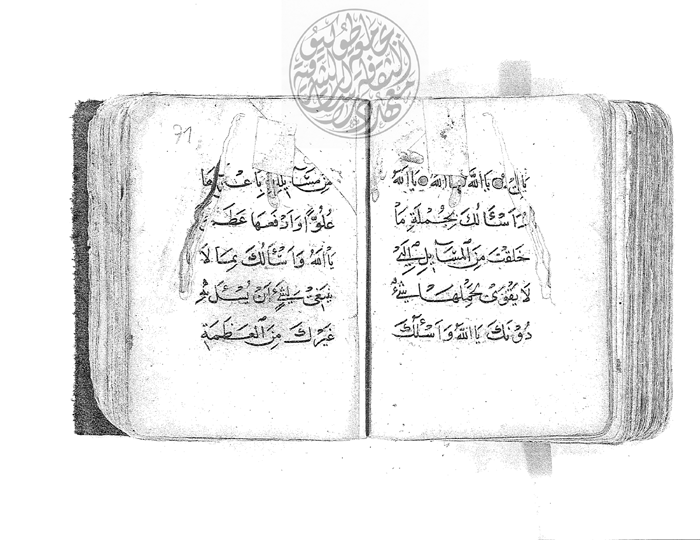 يا الله يا الله يا الله يا الله
وأَسْأَلُكَ بِجُمْلَةِ مَا
خَلَقْتَ مِنَ المَسَايِلِ الَّتِي
لَا يَقْوَىٰ بِحَمْلِهَا شَيْءٌ
دُونَكَ يَا اللَّهُ وَأَسْأَلُكَ
مِنْ مَسَايِلِكَ
عُلُوًّا وَأَرْفَعِهَا
يَا اللَّهُ وَأَسْأَلُكَ بِمَا لَا
يَنْبَغِي لِشَيْءٍ أَنْ يُسْئَلَ بِهِ
غَيْرَكَ مِنَ العَظَمَةِ
71